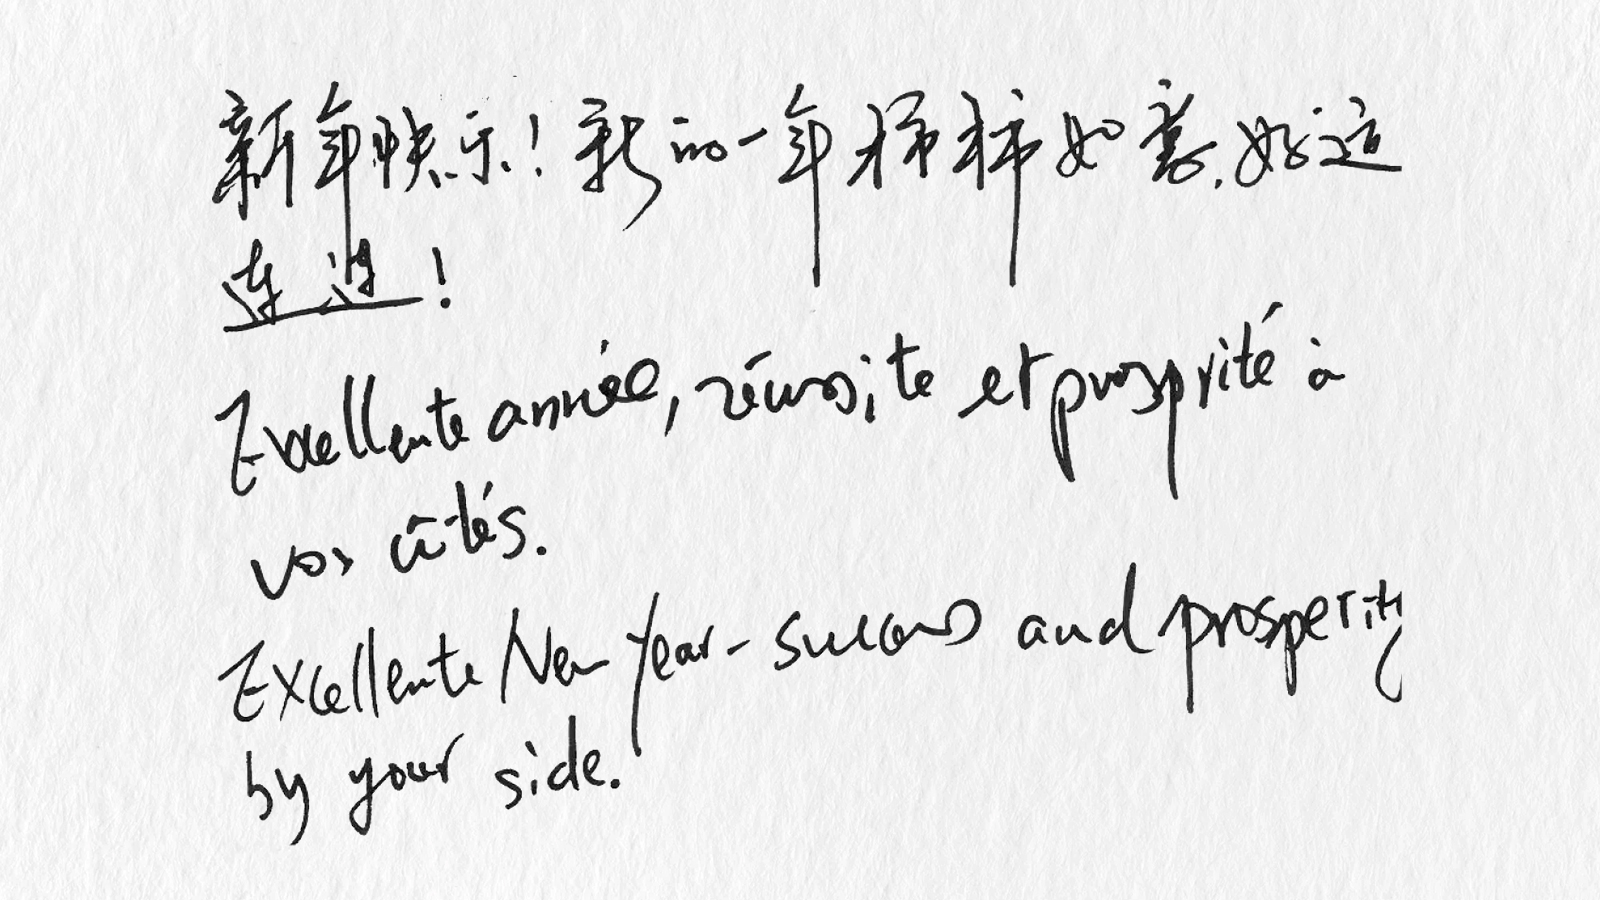 新年快乐！新的一年样样如意,好运
连连！
Excellente année, réussite et prosprité à
vos côtés.
Excellente New Year - success and prosperity
by your side.